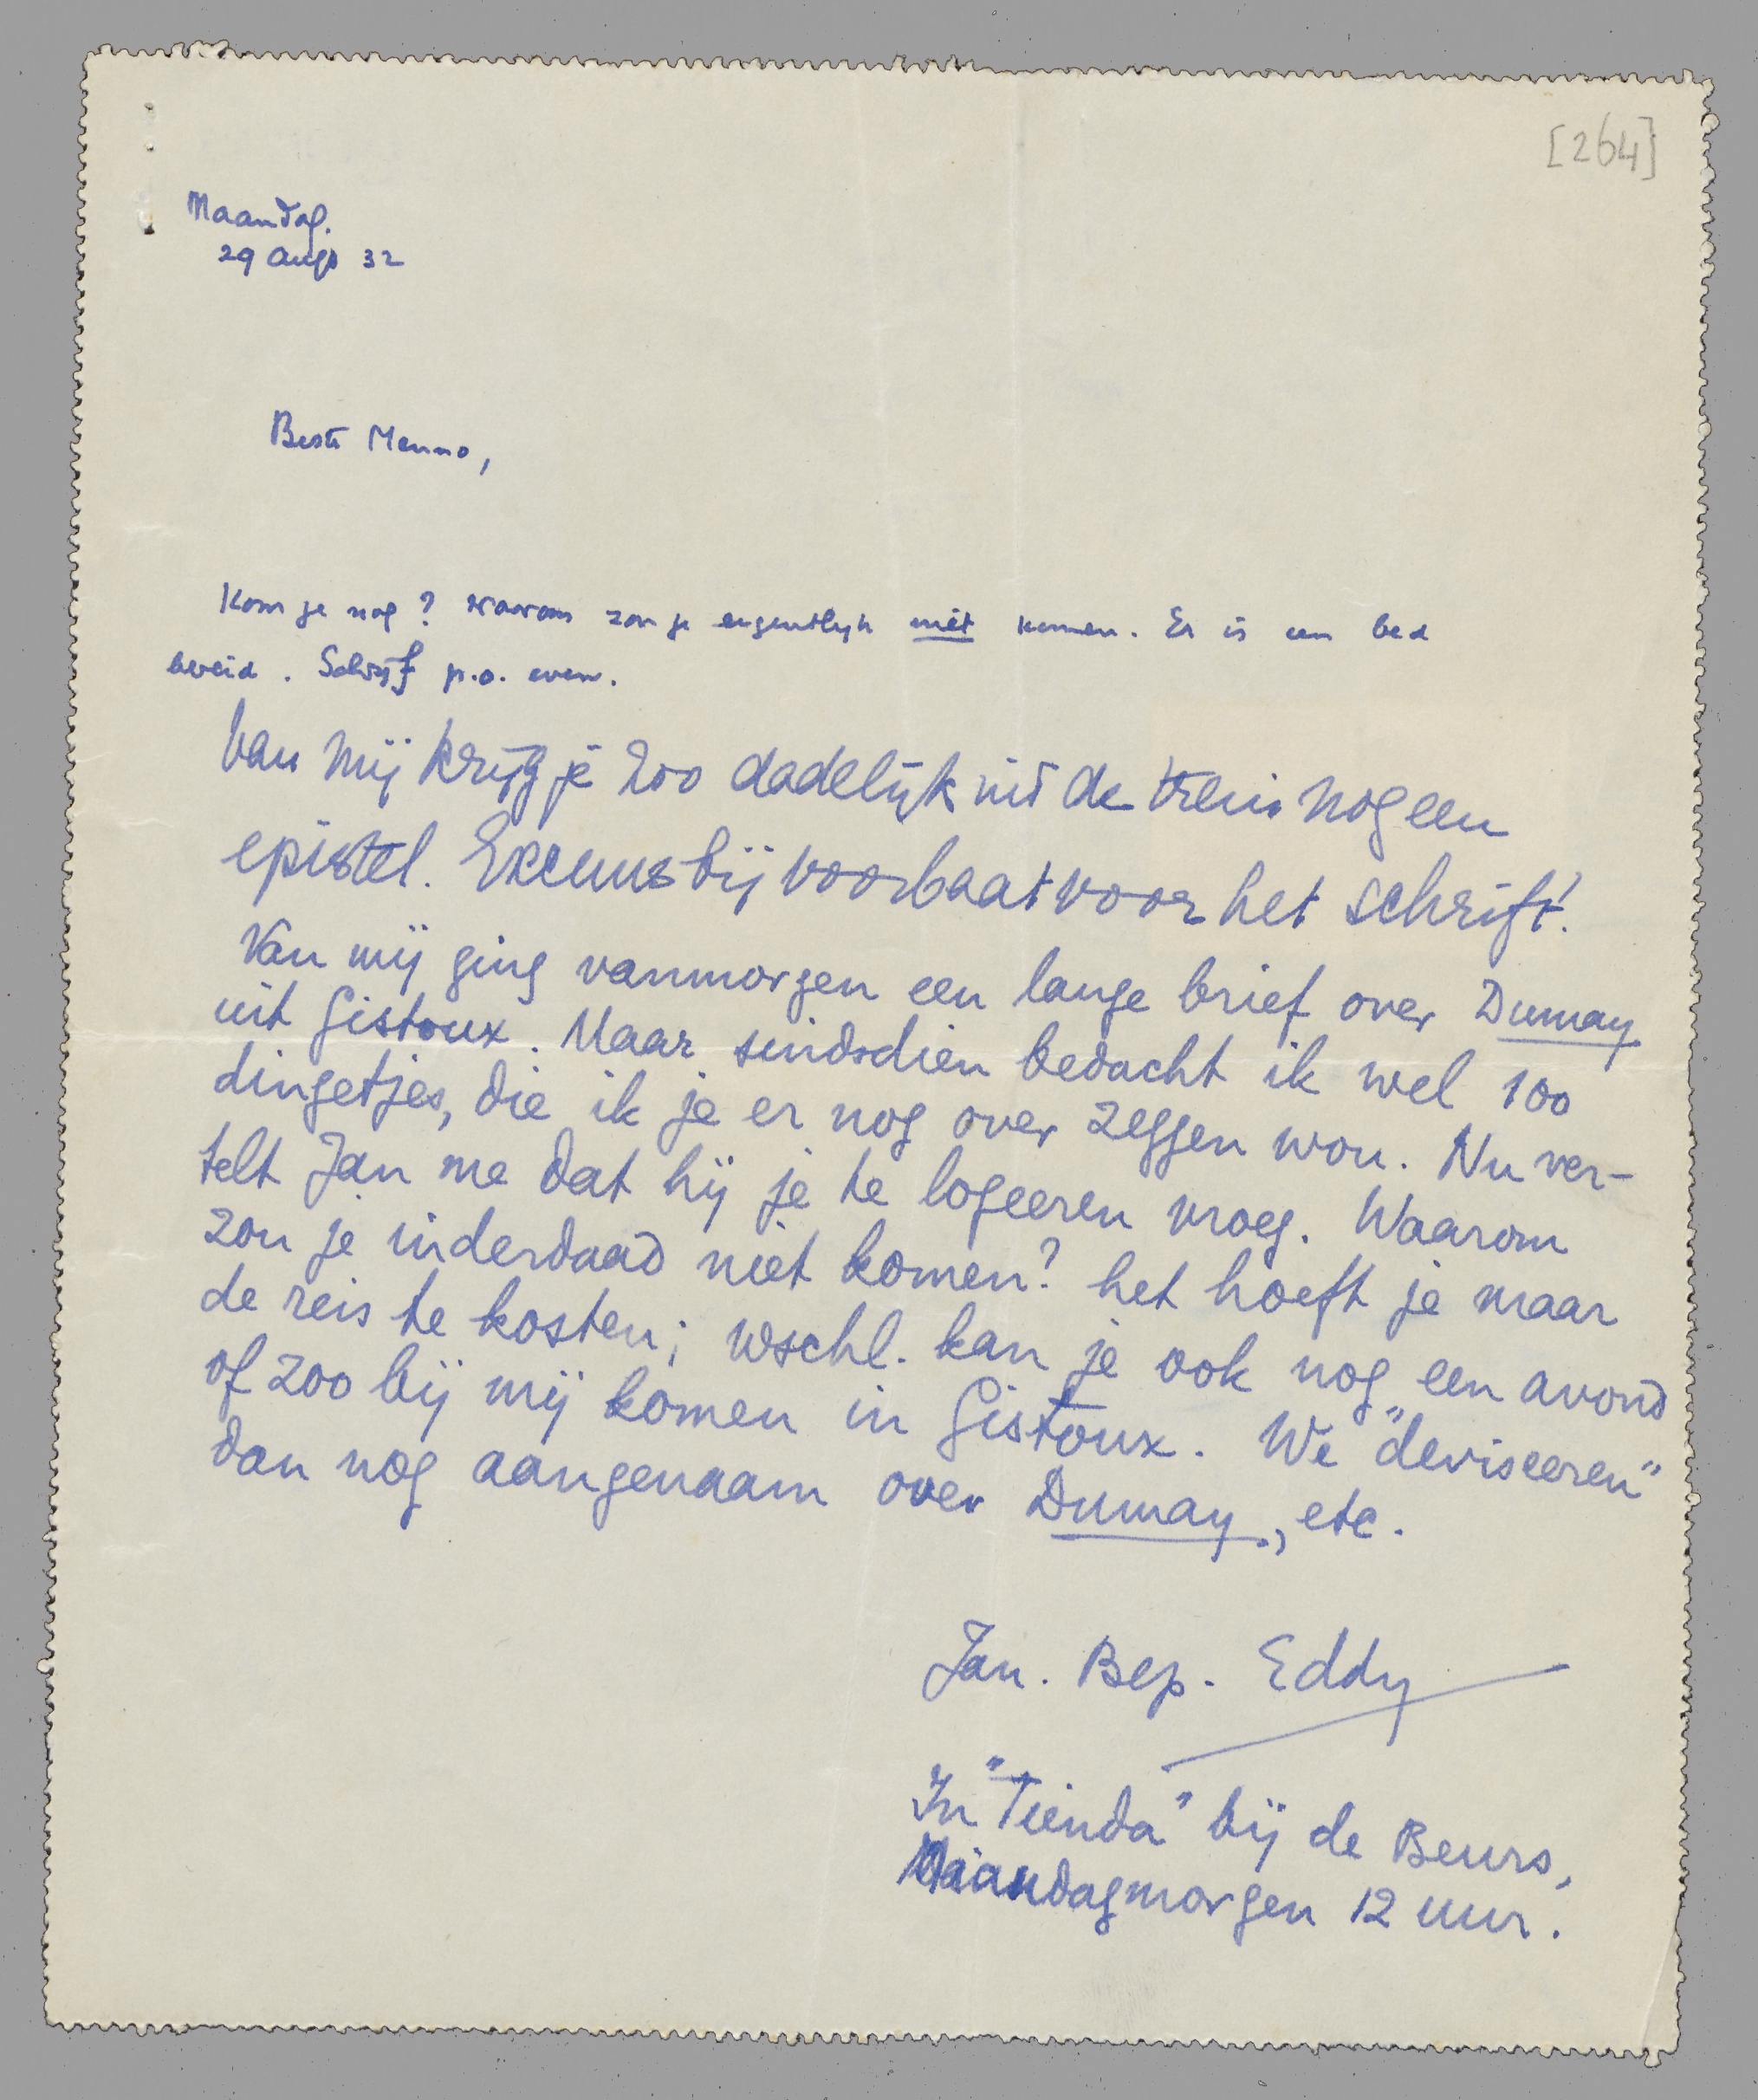 [264]
Maandag.
29 Aug 32
Beste Menno,
Kom je nog? Waarom zou je eigenlijk niet komen. Er is een bed
bereid. Schrijf p.o. even.
Van mij krijg je zoo dadelijk uit de trein nog een
epistel. Excuus bij voorbaat voor het schrift!
Van mij ging vanmorgen een lange brief over Dumay
uit Gistoux. Maar sindsdien bedacht ik wel 100
dingetjes, die ik je er nog over zeggen wou. Nu ver-
telt Jan me dat hij je te logeeren vroeg. Waarom
zou je inderdaad niet komen? het hoeft je maar
de reis te kosten; wschl. kan je ook nog een avond
of zoo bij mij komen in Gistoux. We "deviseeren"
dan nog aangenaam over Dumay, etc.
Jan. Bep. Eddy
In "Tienda" bij de Beurs,
Maandagmorgen 12 uur.